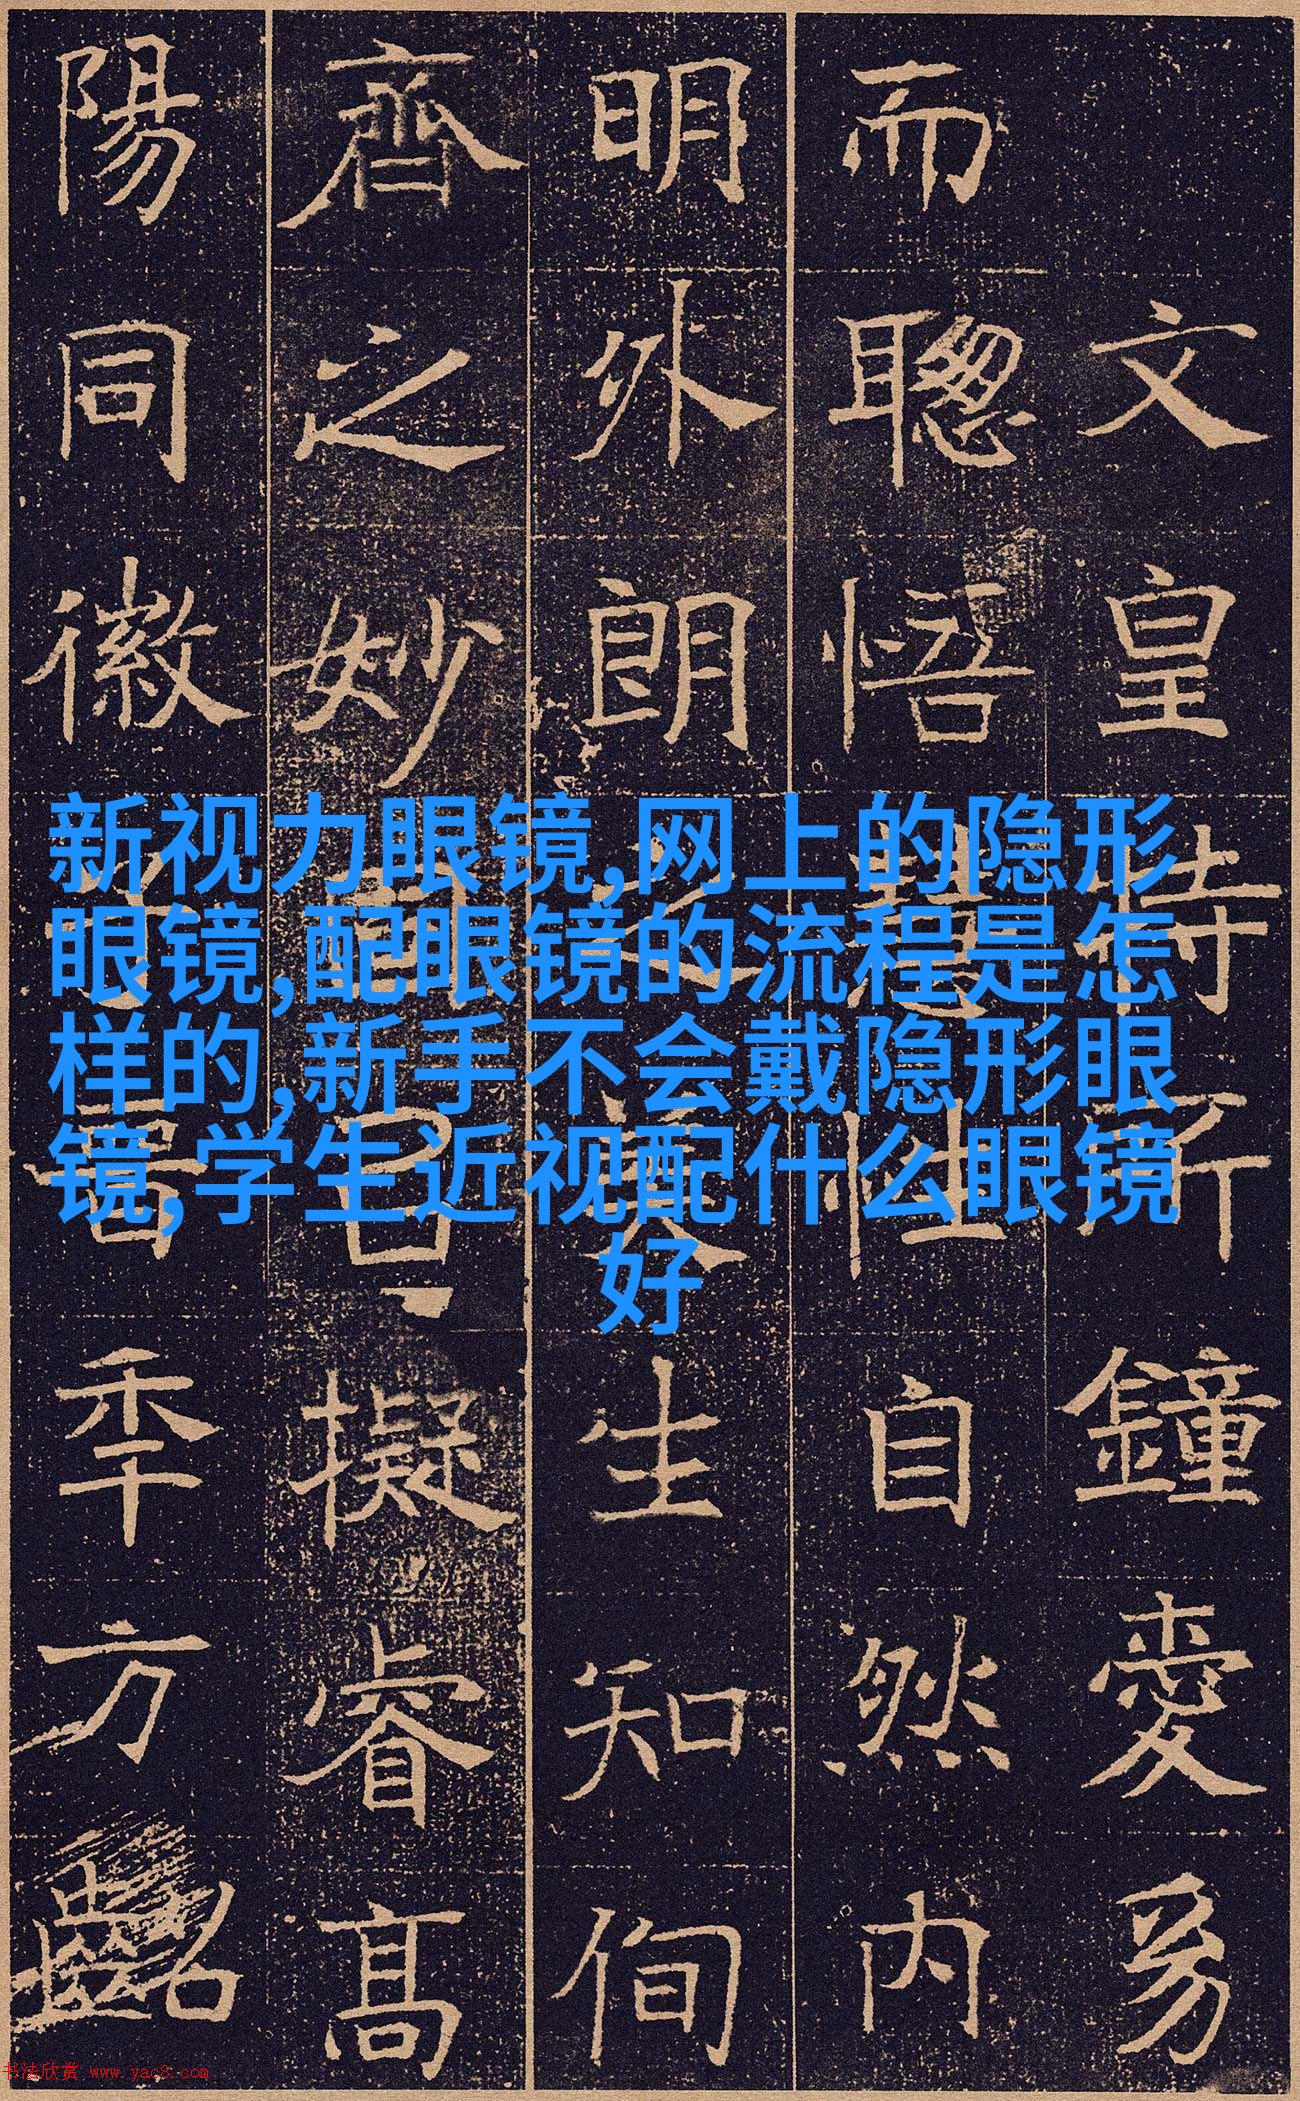 文皇特所鍾愛焉
而聰悟性自然内
明外朗生知侚
齊之妙擬睿高
陽同徽季方齠
新视力眼镜,网上的隐形
眼镜,配眼镜的流程是怎
样的,新手不会戴隐形眼
镜,学生近视配什么眼镜
好
书法欣赏 www.yac8.com